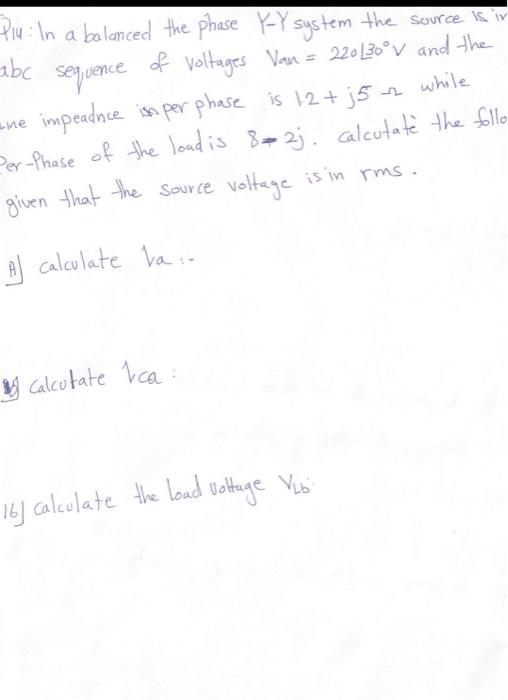 P14: In a balanced the phase Y-Y system the source is in
abc sequence of voltages Van = 220∠30° V and the
line impeadnce per phase is 1.2 + j5 Ω while
Per-Phase of the load is 8-2j. calculate the follo
given that the source voltage is in rms.
A] calculate Ia :-
calculate Ica :
16] calculate the load voltage VLb: